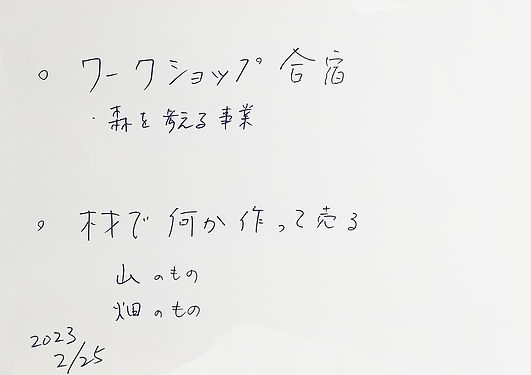 ○ ワークショップ合宿
・森を考える事業
○ 材で何か作って売る
山のもの
畑のもの
2023
2/25